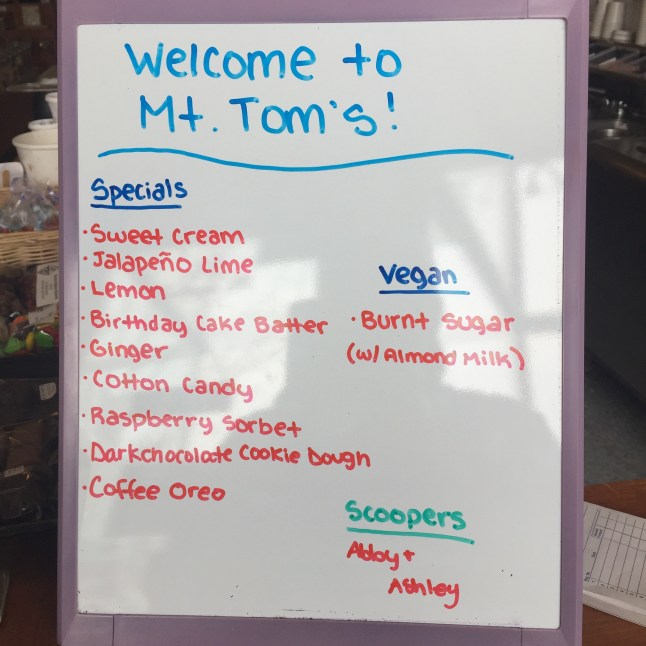 Welcome to
Mt. Tom's!
Specials
·Sweet Cream
·Jalapeño Lime
·Lemon
·Birthday Cake Batter
·Ginger
·Cotton Candy
·Raspberry Sorbet
·Darkchocolate Cookie Dough
·Coffee Oreo
Vegan
·Burnt Sugar
(w/ Almond Milk)
Scoopers
Abby +
Ashley